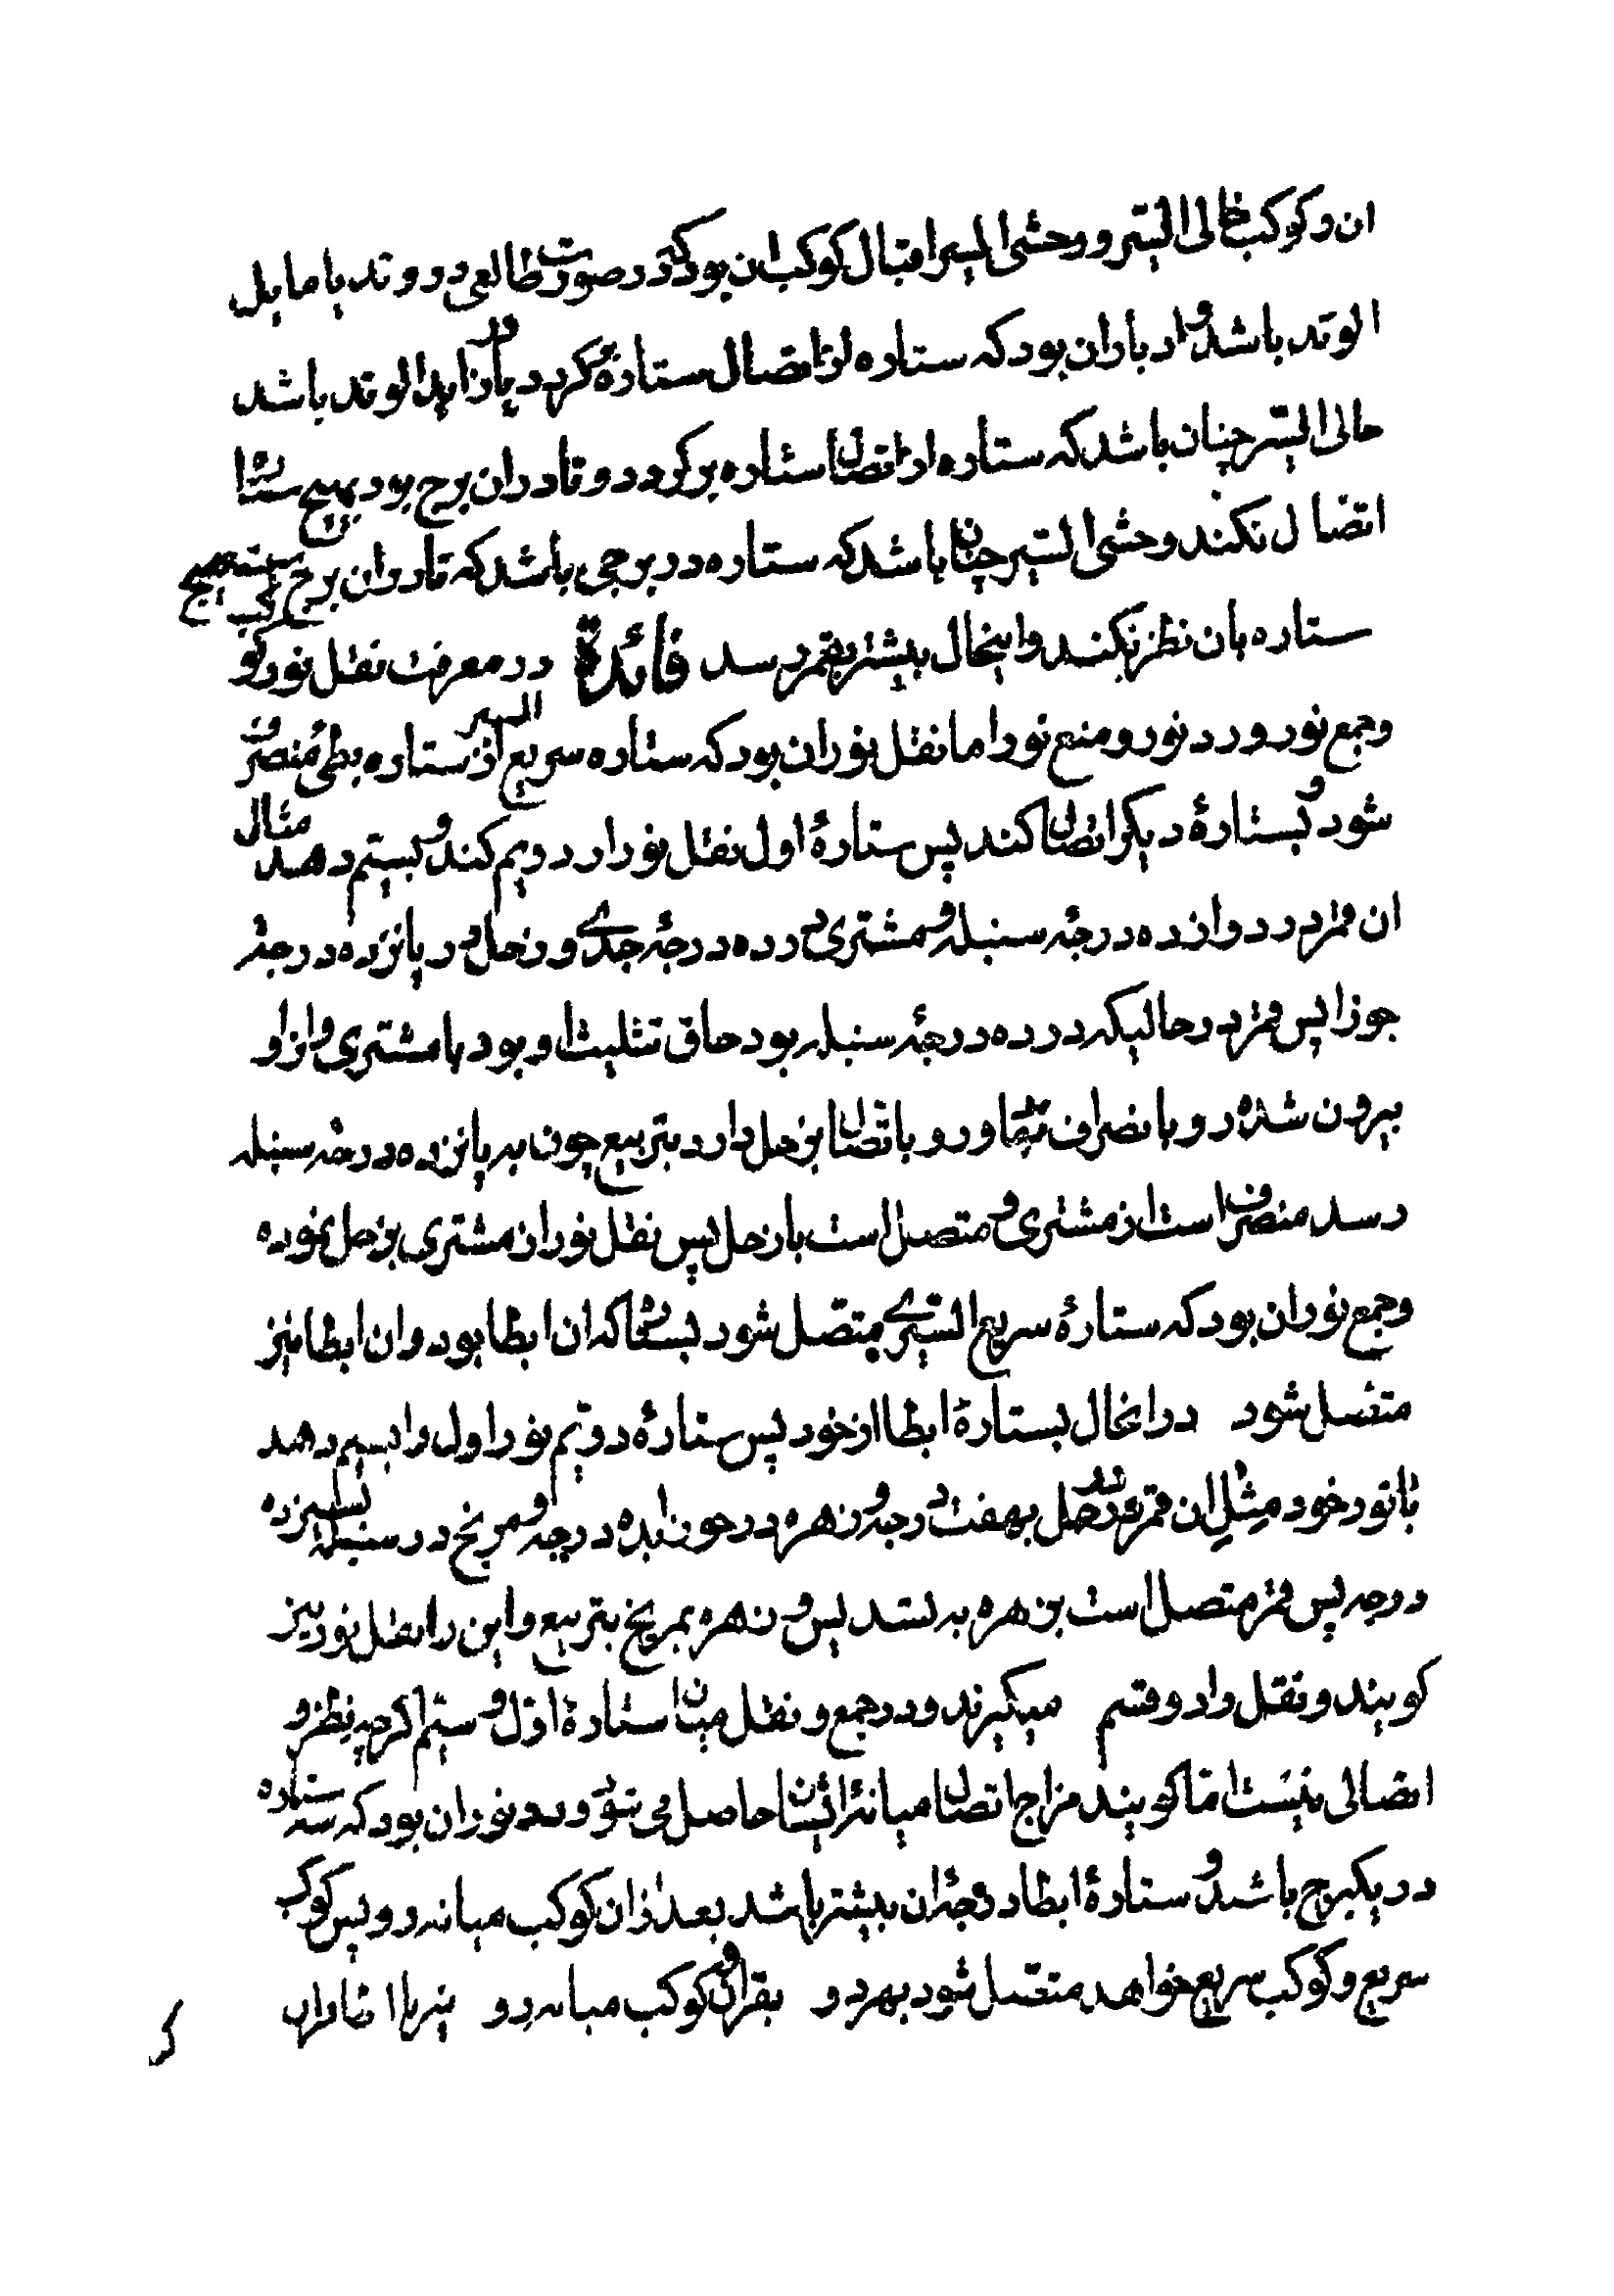 ان و کوکب خالی السیر و وحشی السیر اقبال کوکب ان بود که در صورت طالعی در وتد یا مایل
الوتد باشد و ادباران بود که ستاره از اتصال ستارهٔ برکردد یا در زایل الوتد باشد
خالی السیر چنان باشد که ستاره از اتصال ستاره برکردد و تا دران برج بود بهیچ ستاره
اتصال نکند وحشی السیر چنان باشد که ستاره در برجی باشد که تا دران برج است هیچ
ستاره بان نظر نکند و اینحال بیشتر بقمر رسد فائدة در معرفت نقل نور کو
وجمع نور و رد نور و منع نور اما نقل نور ان بود که ستاره سریع السیر از ستاره بطی منصرف
شود و بستارهٔ دیکر اتصال کند پس ستارهٔ اول نقل نور از دویم کند و بسیم دهد مثال
ان قمر در دوازده درجهٔ سنبله و مشتری در ده درجهٔ جدی و زحل در پانزده درجهٔ
جوزا پس قمر در حالیکه در ده درجهٔ سنبله بود حاق تثلیث او بود با مشتری و از او
بیرون شده رو بانصراف نهاد و رو باتصال بزحل دارد بتربیع چون به پانزده درجه سنبله
رسد منصرف است از مشتری و متصل است بازحل پس نقل نور از مشتری بزحل نموده
وجمع نور ان بود که ستارهٔ سریع السیری متصل شود بستارهٔ که ان ابطا بود و ان ابطا نیز
متصل شود درانحال بستارهٔ ابطا از خود پس ستارهٔ دویم نور اول را بسیم دهد
با نور خود مثل ان قمر در حمل بهفت درجه و زهره در جوزا بده درجه و مریخ در سنبله بسیزده
درجه پس قمر متصل است بزهره به تسدیس و زهره بمریخ بتربیع و این را نقل نور نیز
کویند و نقل را دو قسم میکیرند و در جمع و نقل میان ستارهٔ اول و سیم اکرچه نظر و
اتصالی نیست اما کویند مزاج اتصال میانهٔ ایشان حاصل می شود و رد نور ان بود که سه ستاره
در یکبرج باشد و ستارهٔ ابطا درجهٔ ان بیشتر باشد بعد ازان کوکب میانه رو پس کوکب
سریع و کوکب سریع خواهد متصل شود بهر دو بقران و کوکب میانه رو نیز با